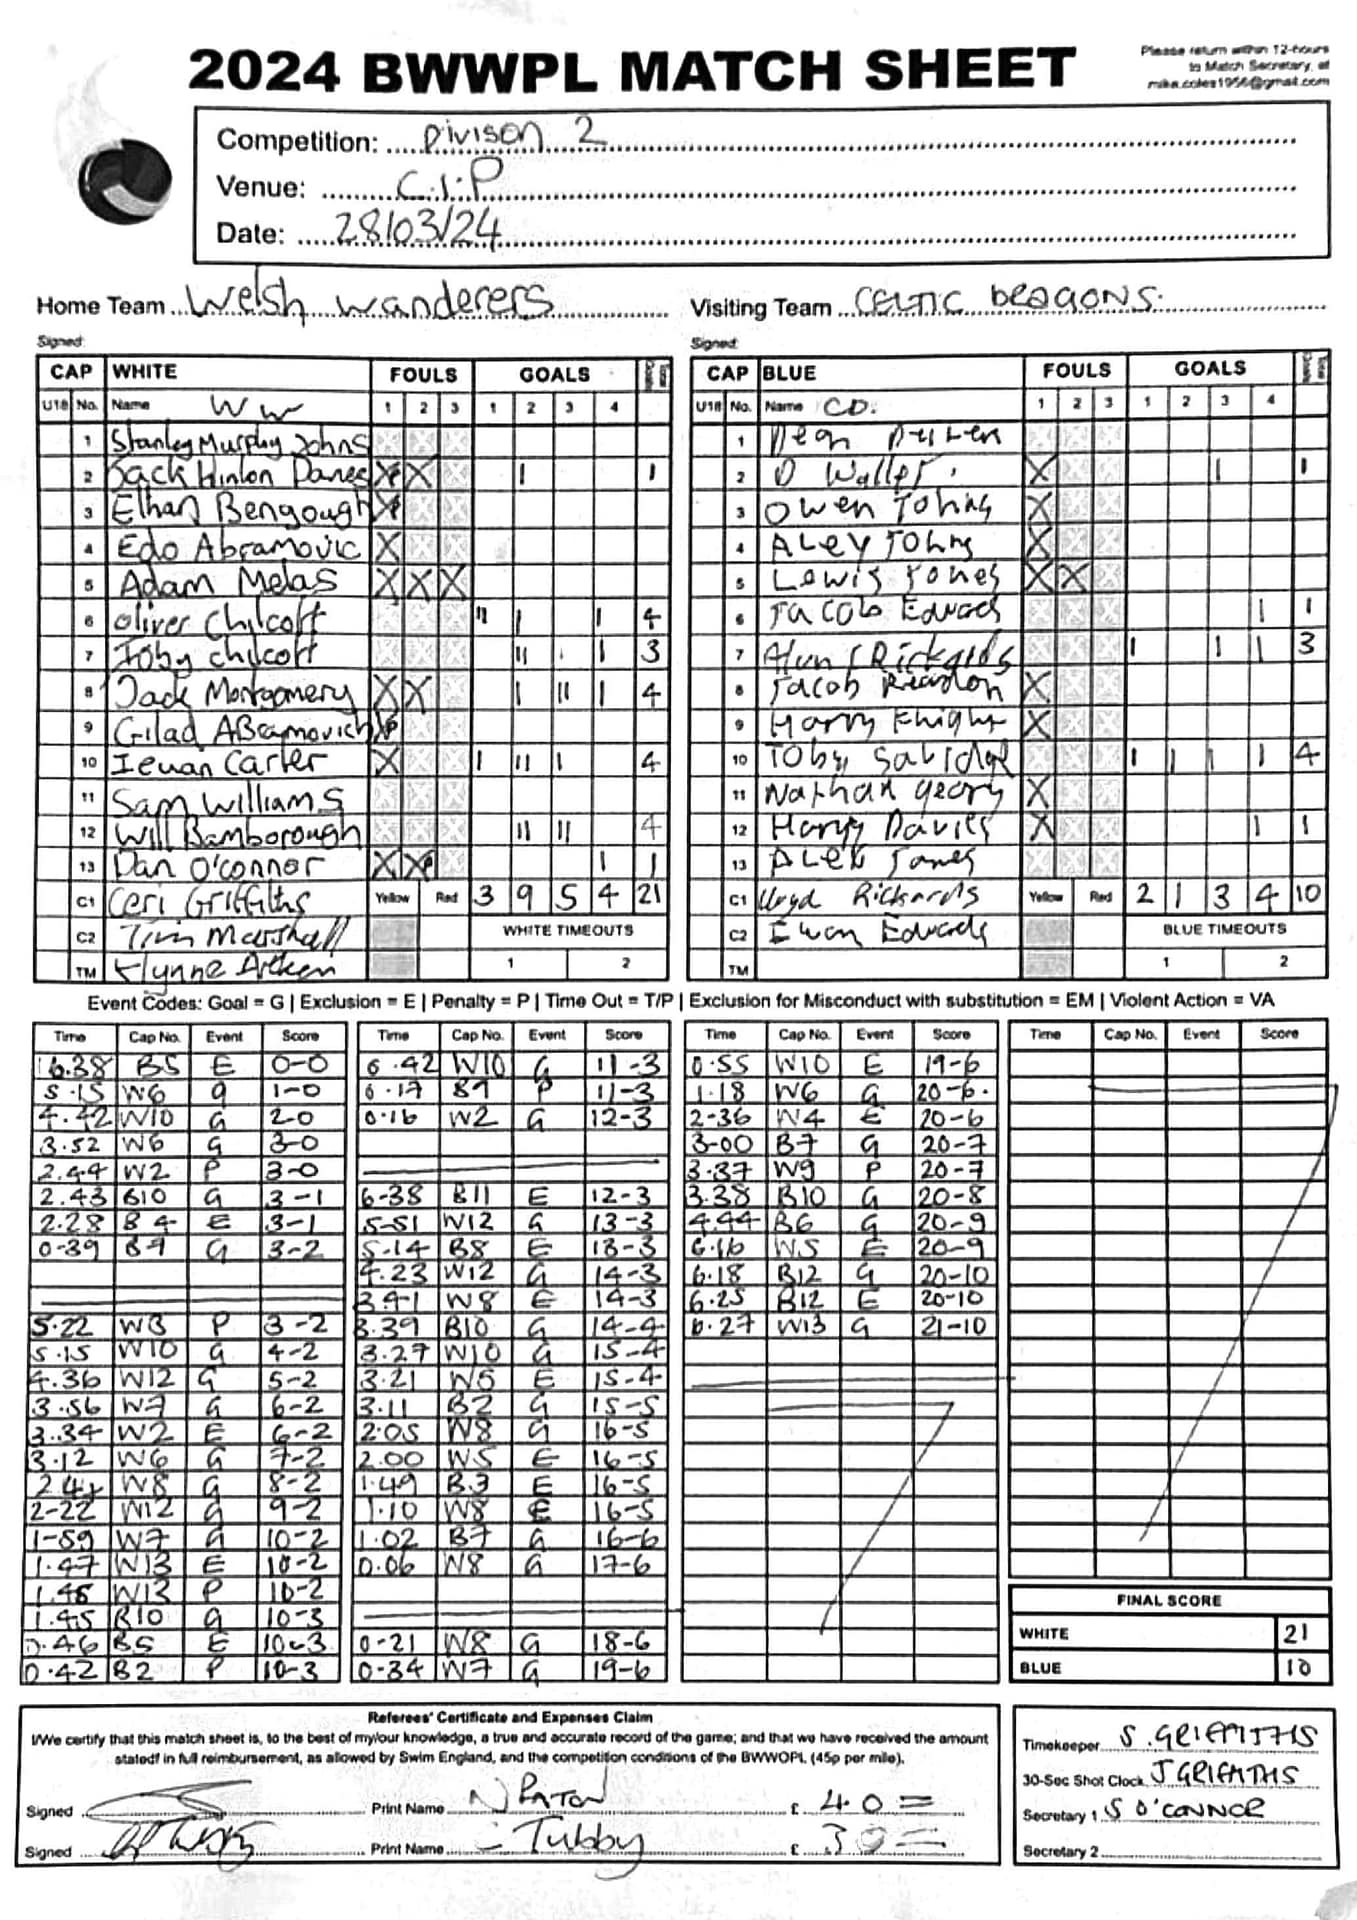 2024 BWWPL MATCH SHEET
Please return within 12-hours
to Match Secretary, at
mike.coles1956@gmail.com
Competition: Divison 2
Venue: C.I.P
Date: 28/03/24
Home Team Welsh Wanderers
Visiting Team CELTIC DRAGONS.
Signed:
Signed:
CAP WHITE FOULS GOALS Total Goals
U18 No. Name WW 1 2 3 1 2 3 4
1 Stanley Murphy Johns
2 Jack Hinton Danes X X | 1
3 Ethan Bengough X
4 Edo Abramovic X
5 Adam Melas X X X
6 Oliver Chilcott || | | 4
7 Toby Chilcott || | 3
8 Jack Montgomery X X | || | 4
9 Gilad Abramovich X
10 Ieuan Carter X | || | 4
11 Sam Williams
12 Will Bamborough || || 4
13 Dan O'Connor X X | 1
C1 Ceri Griffiths Yellow Red 3 9 5 4 21
C2 Tim Marshall WHITE TIMEOUTS
TM Klynne Aitken 1 2
CAP BLUE FOULS GOALS Total Goals
U18 No. Name CD. 1 2 3 1 2 3 4
1 Dean
2 D Waller X | 1
3 Owen Johns X
4 ALEX JOHNS X
5 Lewis Jones X X
6 Jacob Edwards | 1
7 Rickards | | | 3
8 Jacob Reardon X
9 Harry Knight X
10 Toby Savidge | | | | 4
11 Nathan George X
12 Harry Davies X | 1
13 ALEX James
C1 Lloyd Rickards Yellow Red 2 1 3 4 10
C2 Ewan Edwards BLUE TIMEOUTS
TM 1 2
Event Codes: Goal = G | Exclusion = E | Penalty = P | Time Out = T/P | Exclusion for Misconduct with substitution = EM | Violent Action = VA
Time Cap No. Event Score
6.38 B5 E 0-0
5.15 W6 G 1-0
4.42 W10 G 2-0
3.52 W6 G 3-0
2.44 W2 P 3-0
2.43 B10 G 3-1
2.28 B4 E 3-1
0-39 B7 G 3-2
5.22 W3 P 3-2
5.15 W10 G 4-2
4.36 W12 G 5-2
3.56 W7 G 6-2
3.34 W2 E 6-2
3.12 W6 G 7-2
2.4 W8 G 8-2
2-22 W12 G 9-2
1-59 W7 G 10-2
1.47 W13 E 10-2
1.45 W13 P 10-2
1.45 B10 G 10-3
0.46 B5 E 10-3
0.42 B2 P 10-3
Time Cap No. Event Score
6.42 W10 G 11-3
6.17 B9 P 11-3
0.16 W2 G 12-3
6-38 B11 E 12-3
5-51 W12 G 13-3
5.14 B8 E 13-3
4.23 W12 G 14-3
3.41 W8 E 14-3
3.39 B10 G 14-4
3.27 W10 G 15-4
3.21 W5 E 15-4
3.11 B2 G 15-5
2.05 W8 G 16-5
2.00 W5 E 16-5
1.49 B3 E 16-5
1.10 W8 E 16-5
1.02 B7 G 16-6
0.06 W8 G 17-6
0-21 W8 G 18-6
0-34 W7 G 19-6
Time Cap No. Event Score
0.55 W10 E 19-6
1.18 W6 G 20-6.
2-36 W4 E 20-6
3-00 B7 G 20-7
3.37 W9 P 20-7
3.38 B10 G 20-8
4.44 B6 G 20-9
6.16 W5 E 20-9
6.18 B12 G 20-10
6.25 B12 E 20-10
6.27 W13 G 21-10
Time Cap No. Event Score
FINAL SCORE
WHITE 21
BLUE 10
Referees' Certificate and Expenses Claim
I/We certify that this match sheet is, to the best of my/our knowledge, a true and accurate record of the game; and that we have received the amount
stated/ in full reimbursement, as allowed by Swim England, and the competition conditions of the BWWOPL (45p per mile).
Signed Print Name N PATON £ 40 =
Signed Print Name Tubby £ 30 =
Timekeeper S. GRIFFITHS
30-Sec Shot Clock J GRIFFITHS
Secretary 1 S O'CONNOR
Secretary 2